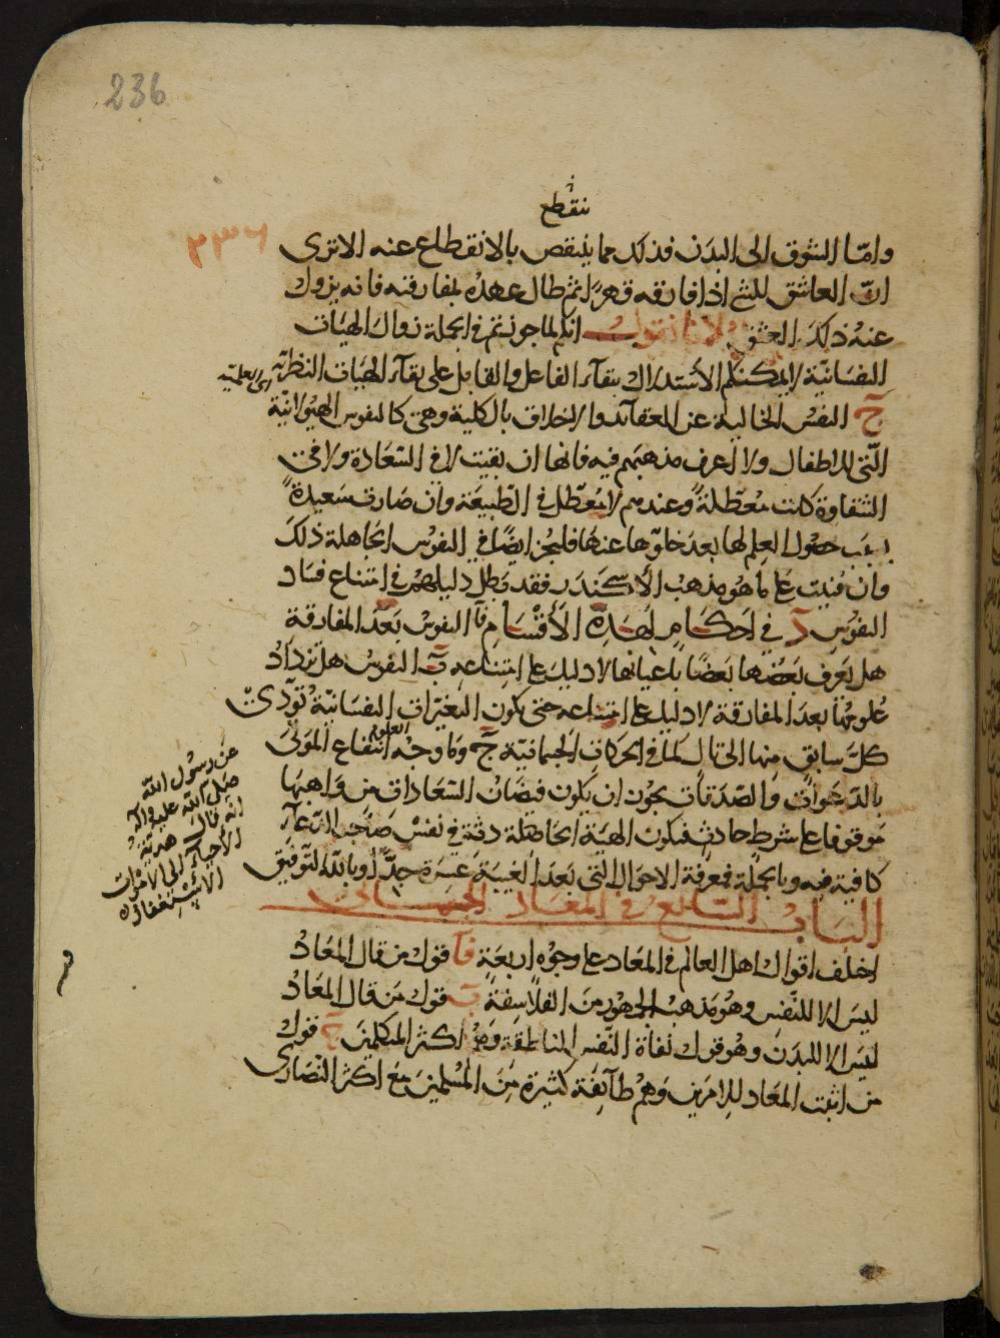 236
ينقطع
٢٣٦
وامّا الشوق الى البدن فذلك مما ينقص بالانقطاع عنه الا ترى
انّ العاشق للشئ اذا فارقه قهرًا ثم طال عهده بمفارقته فانه يزول
عنه ذلك العشق لانا نقول انكم لما جوزتم في الجملة زوال الهيآت
النفسانيّة لا يمكنكم الاستدلال ببقآء الفاعل والقابل على بقآء الهيآت النظريّة
اى العلميّه
ج النفس الخالية عن العقآئد والاخلاق بالكلية وهى كالنفوس الهيولانيّة
الّتى للاطفال ولا اعرف مذهبهم فيه فانها ان بقيت لا في السّعادة ولا في
الشقاوة كانت معطلةً وعندهم لا معطّل في الطبيعة وان صارت سعيدةً
بسبب حصول العلم لها بعد خلوّها عنها فليجز ايضًا في النفوس الجاهلة ذلك
وان فنيت على ما هو مذهب الاسكندر فقد بطل دليلهم في امتناع فساد
النفوس د في احكامٍ لهذه الأقسام آ النفوس بعد المفارقة
هل يعرف بعضها بعضًا باعيانها لا دليل على امتناعه ب النفوس هل تزداد
علومها بعد المفارقة لا دليل على امتناعه حتى يكون التغيرات النفسانيّة تؤدّى
كلّ سابق منها الى تالٍ كما في الحركات الجسمانيّة ج وما وجه انتفاع الموتى
بالدّعوات والصّدقات يجوز ان يكون فيضان السّعادات من واهبها
موقوفا على شرط حادث فيكون الهيئة الحاصلة دفعة في نفس صاحب الدعآء
كافية فيه وبالجملة فمعرفة الاحوال التى بعد الغيبة عسرة جدًّا وبالله التوفيق
عن رسول الله
صلى الله عليه وآله
انه قال هدية
الاحياء الى الاموات
الاستغفار
الباب التاسع في المعاد الجسمانى
اختلف اقوال اهل العالم في المعاد على وجوه اربعةٍ فآ قول من قال المعاد
ليس الا للنّفس وهو مذهب الجمهور من الفلاسفة ب قول من قال المعاد
ليس الا للبدن وهو قول نفاة النّفس الناطقة وهم اكثر المتكلمين ج قول
من اثبت المعاد للامرين وهم طآئفة كثيرة من المسلمين مع اكثر النصارى